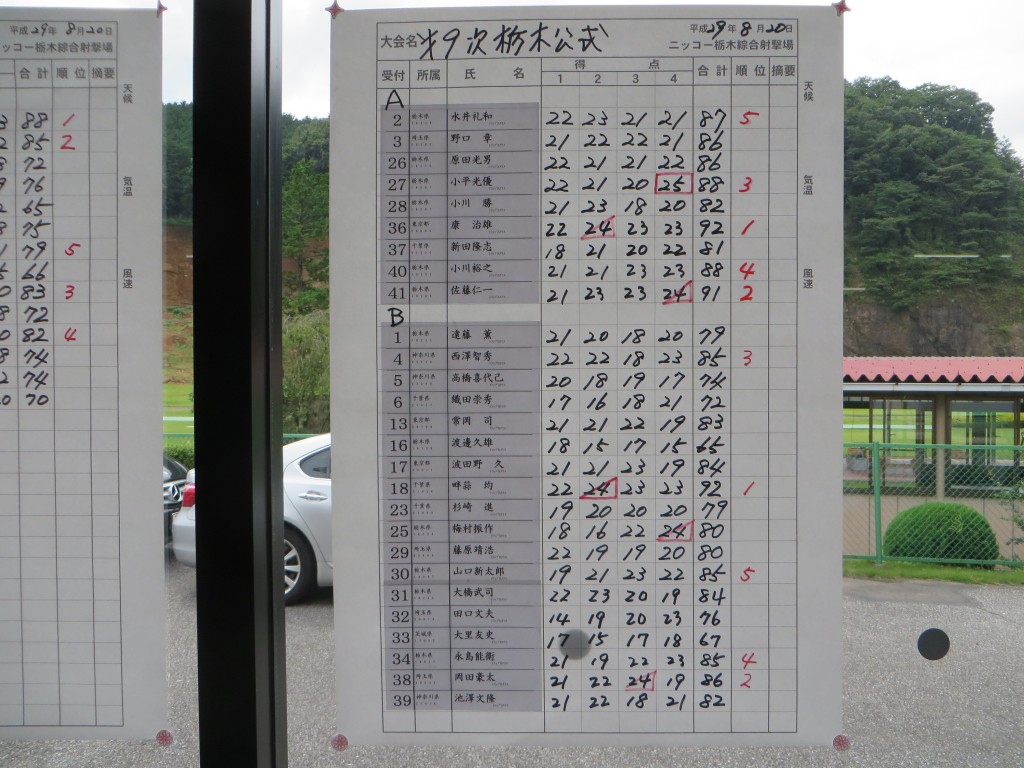 平成29年 8月20日
ニッコー栃木綜合射撃場
合計 順位 摘要
天候
気温
風速
88 1
85 2
72
76
65
75
79 5
66
83 3
72
82 4
74
74
70
平成29年 8月20日
大会名 第9次栃木公式 ニッコー栃木綜合射撃場
受付 所属 氏名 得点 1 2 3 4 合計 順位 摘要
天候
気温
風速
A
2 栃木県 永井礼和 22 23 21 21 87 5
3 埼玉県 野口 章 21 22 22 21 86
26 栃木県 原田光男 22 21 21 22 86
27 栃木県 小平光優 22 21 20 25 88 3
28 栃木県 小川 勝 21 23 18 20 82
36 東京都 康 治雄 22 24 23 23 92 1
37 千葉県 新田隆志 18 21 20 22 81
40 栃木県 小川裕之 21 21 23 23 88 4
41 栃木県 佐藤仁一 21 23 23 24 91 2
B
1 栃木県 遠藤 薫 21 20 18 20 79
4 神奈川県 西澤智秀 22 22 18 23 85 3
5 神奈川県 高橋喜代己 20 18 19 17 74
6 千葉県 織田崇秀 17 16 18 21 72
13 東京都 常岡 司 21 21 22 19 83
16 栃木県 渡邊久雄 18 15 17 15 65
17 東京都 波田野 久 21 21 23 19 84
18 千葉県 畔蒜 均 22 24 23 23 92 1
23 千葉県 杉崎 進 19 20 20 20 79
25 栃木県 梅村振作 18 16 22 24 80
29 埼玉県 藤原靖浩 22 19 19 20 80
30 栃木県 山口新太郎 19 21 23 22 85 5
31 栃木県 大橋武司 22 23 20 19 84
32 埼玉県 田口文夫 14 19 20 23 76
33 茨城県 大里友史 17 15 17 18 67
34 栃木県 永島能衛 21 19 22 23 85 4
38 埼玉県 岡田豪太 21 22 24 19 86 2
39 神奈川県 池澤文隆 21 22 18 21 82